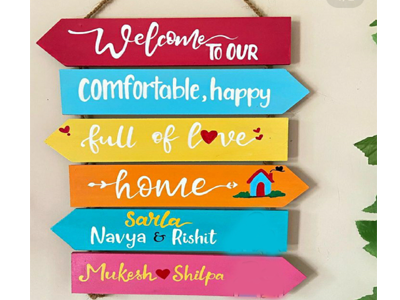 Welcome TO OUR
comfortable, happy
full of love
home
Sarla
Navya & Rishit
Mukesh Shilpa